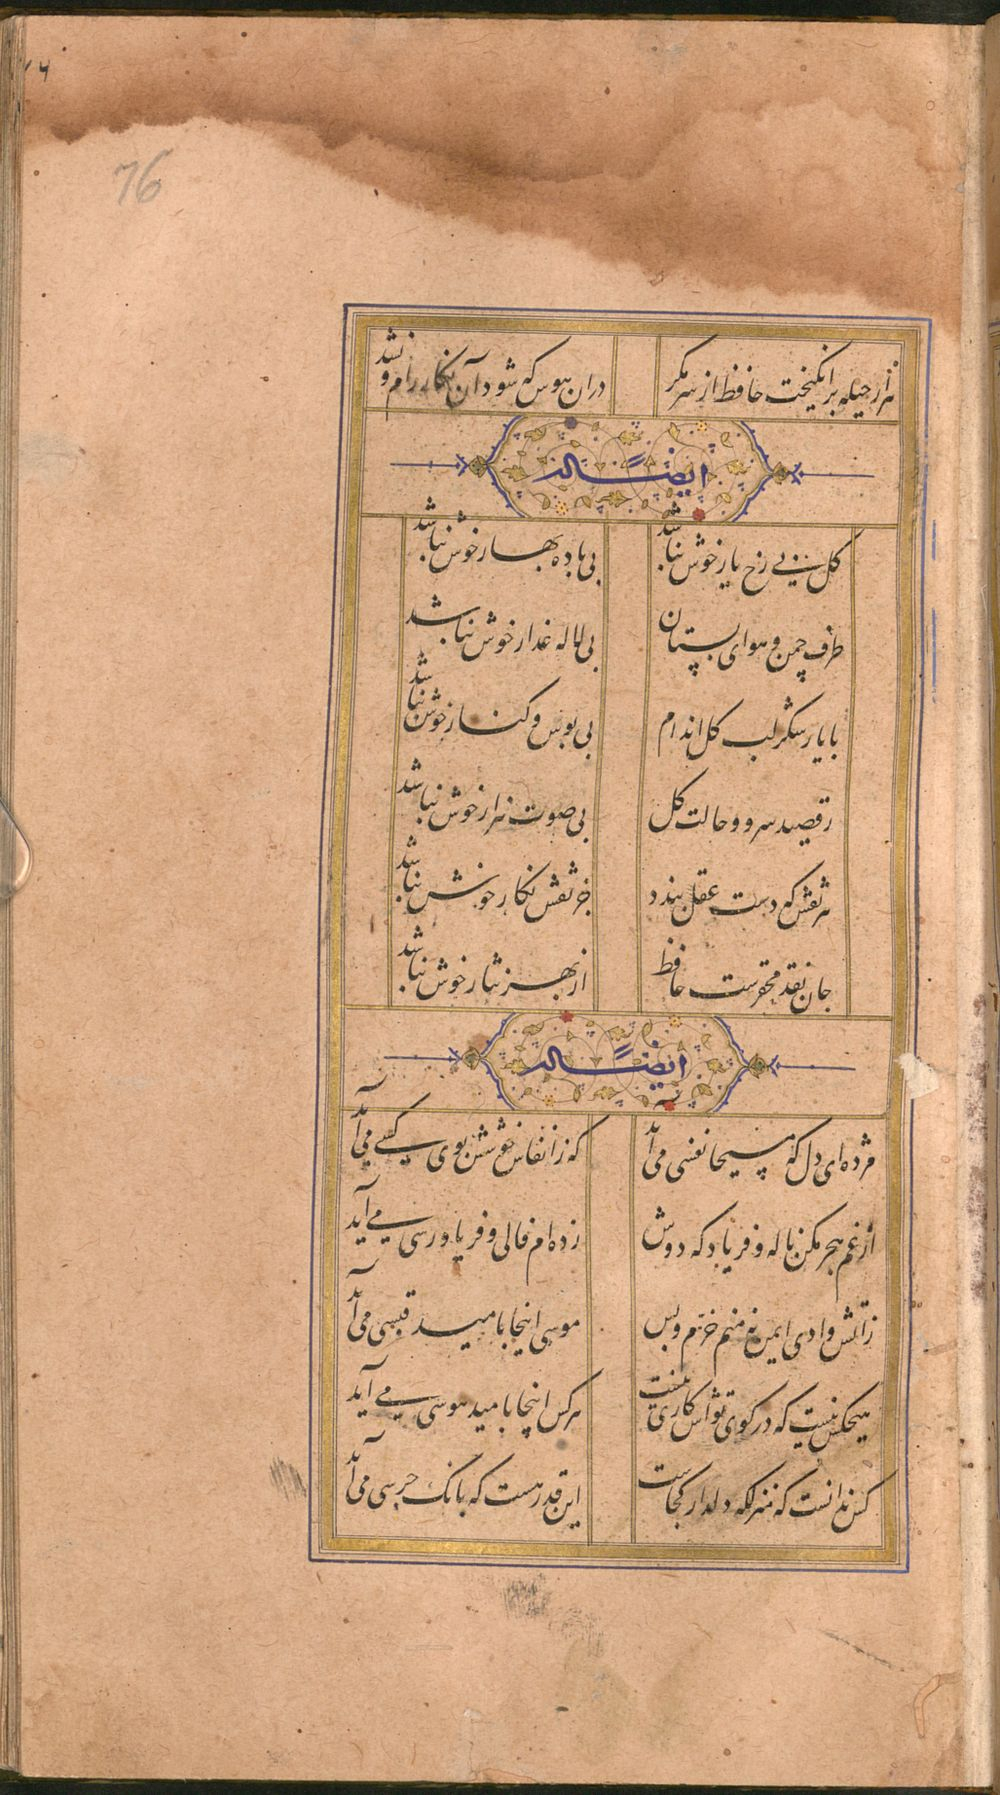 ۷۶
76
هزار حیله برانگیخت حافظ از سر مکر دران هوس که شود آن نگار رام و نشد
ایضاً له
کل بی رخ یار خوش نباشد بی باده بهار خوش نباشد
طرف چمن و هوای بستان بی لاله عذار خوش نباشد
با یار شکر لب کل اندام بی بوس و کنار خوش نباشد
رقصیدن سرو و حالت کل بی صوت هزار خوش نباشد
هر نقش که دست عقل بندد جز نقش نکار خوش نباشد
جان نقد محقرست حافظ از بهر نثار خوش نباشد
ایضاً له
مژده ای دل که مسیحا نفسی می آید که ز انفاس خوشش بوی کسی می آید
از غم هجر مکن ناله و فریاد که دوش زده ام فالی و فریاد رسی می آید
ز آتش وادی ایمن نه منم خرم و بس موسی اینجا بامید قبسی می آید
هیچکس نیست که در کوی تو اش کاری نیست هر کس اینجا بامید هوسی می آید
کس ندانست که منزلکه دلدار کجاست این قدر هست که بانک جرسی می آید